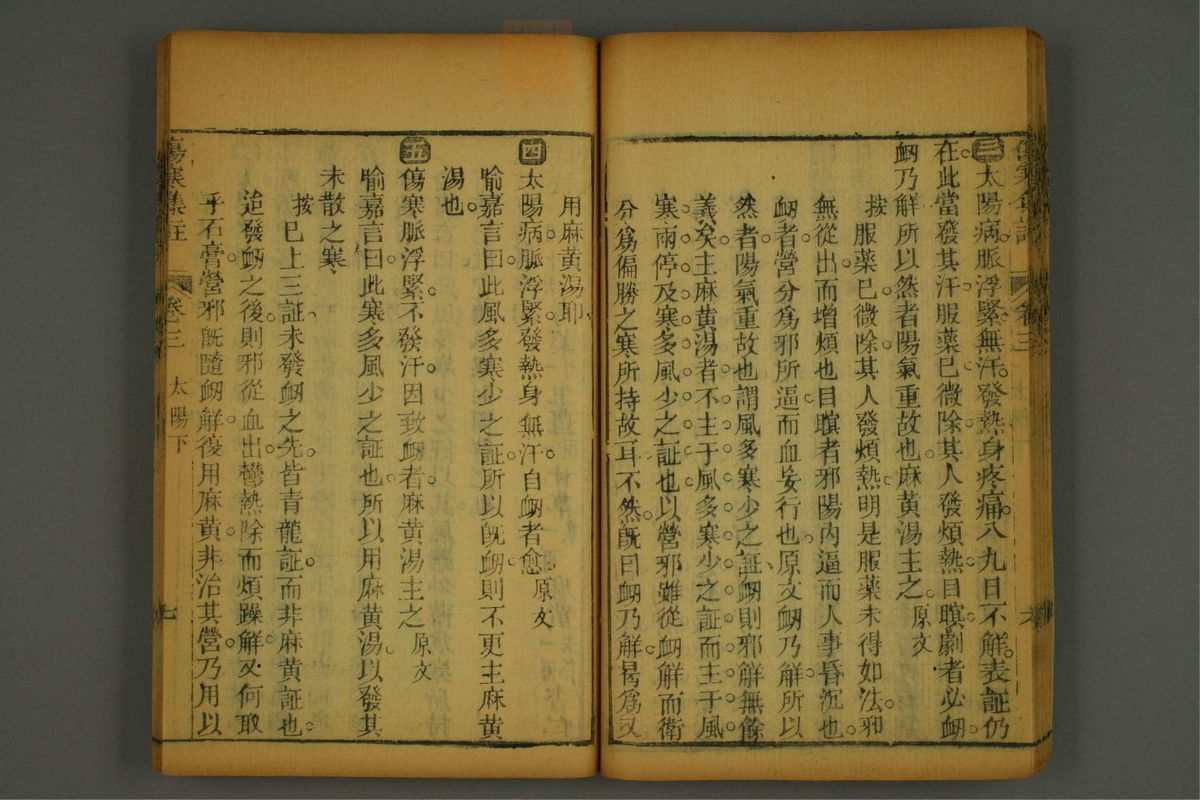 傷寒集註 卷三
三 太陽病脈浮緊無汗發熱身疼痛八九日不解表証仍
在此當發其汗服藥已微除其人發煩熱目瞑劇者必衂
衂乃解所以然者陽氣重故也麻黃湯主之 原文
按服藥已微除其人發煩熱明是服藥未得如法邪
無從出而增煩也目瞑者邪陽內逼而人事昏沉也
衂者營分爲邪所逼而血妄行也原文衂乃解所以
然者陽氣重故也謂風多寒少之証衂則邪解無餘
義矣主麻黃湯者不主于風多寒少之証而主于風
寒雨停及寒多風少之証也以營邪雖從衂解而衛
分爲偏勝之寒所持故耳不然旣曰衂乃解曷爲又
用麻黃湯耶
四 太陽病脈浮緊發熱身無汗自衂者愈 原文
喻嘉言曰此風多寒少之証所以旣衂則不更主麻黃
湯也
五 傷寒脈浮緊不發汗因致衂者麻黃湯主之 原文
喻嘉言曰此寒多風少之証也所以用麻黃湯以發其
未散之寒
按已上三証未發衂之先皆青龍証而非麻黃証也
迨發衂之後則邪從血出鬱熱除而煩躁解又何取
乎石膏營邪旣隨衂解復用麻黃非治其營乃用以
傷寒集註 卷三 太陽下 七